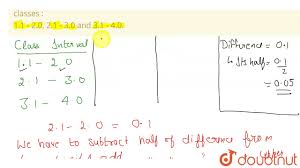 classes :
1.1 - 2.0, 2.1 - 3.0 and 3.1 - 4.0.
Class Interval
1.1 - 2.0
2.1 - 3.0
3.1 - 4.0
Difference = 0.1
Its half = 0.1
2
= 0.05
2.1 - 2.0 = 0.1
We have to subtract half of difference from
doubtnut